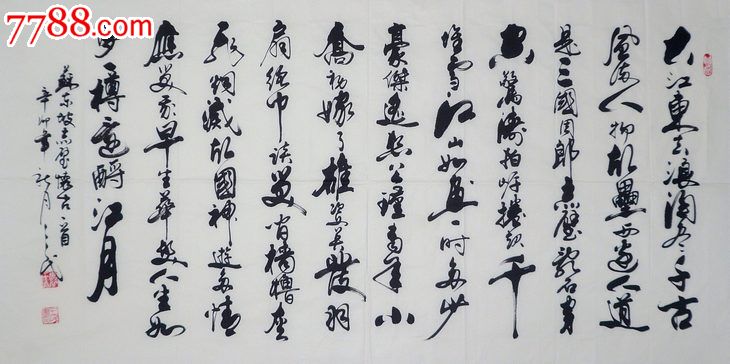 7788.com
大江東去浪淘尽千古
風流人物故壘西邊人道
是三國周郎赤壁亂石穿
空驚濤拍岸捲起千
堆雪江山如畫一時多少
豪傑遙想公瑾當年小
喬初嫁了雄姿英發羽
扇綸巾談笑間檣櫓灰
飛煙滅故國神遊多情
應笑我早生華髮人生如
夢樽還酹江月
蘇東坡赤壁懷古一首
辛卯書